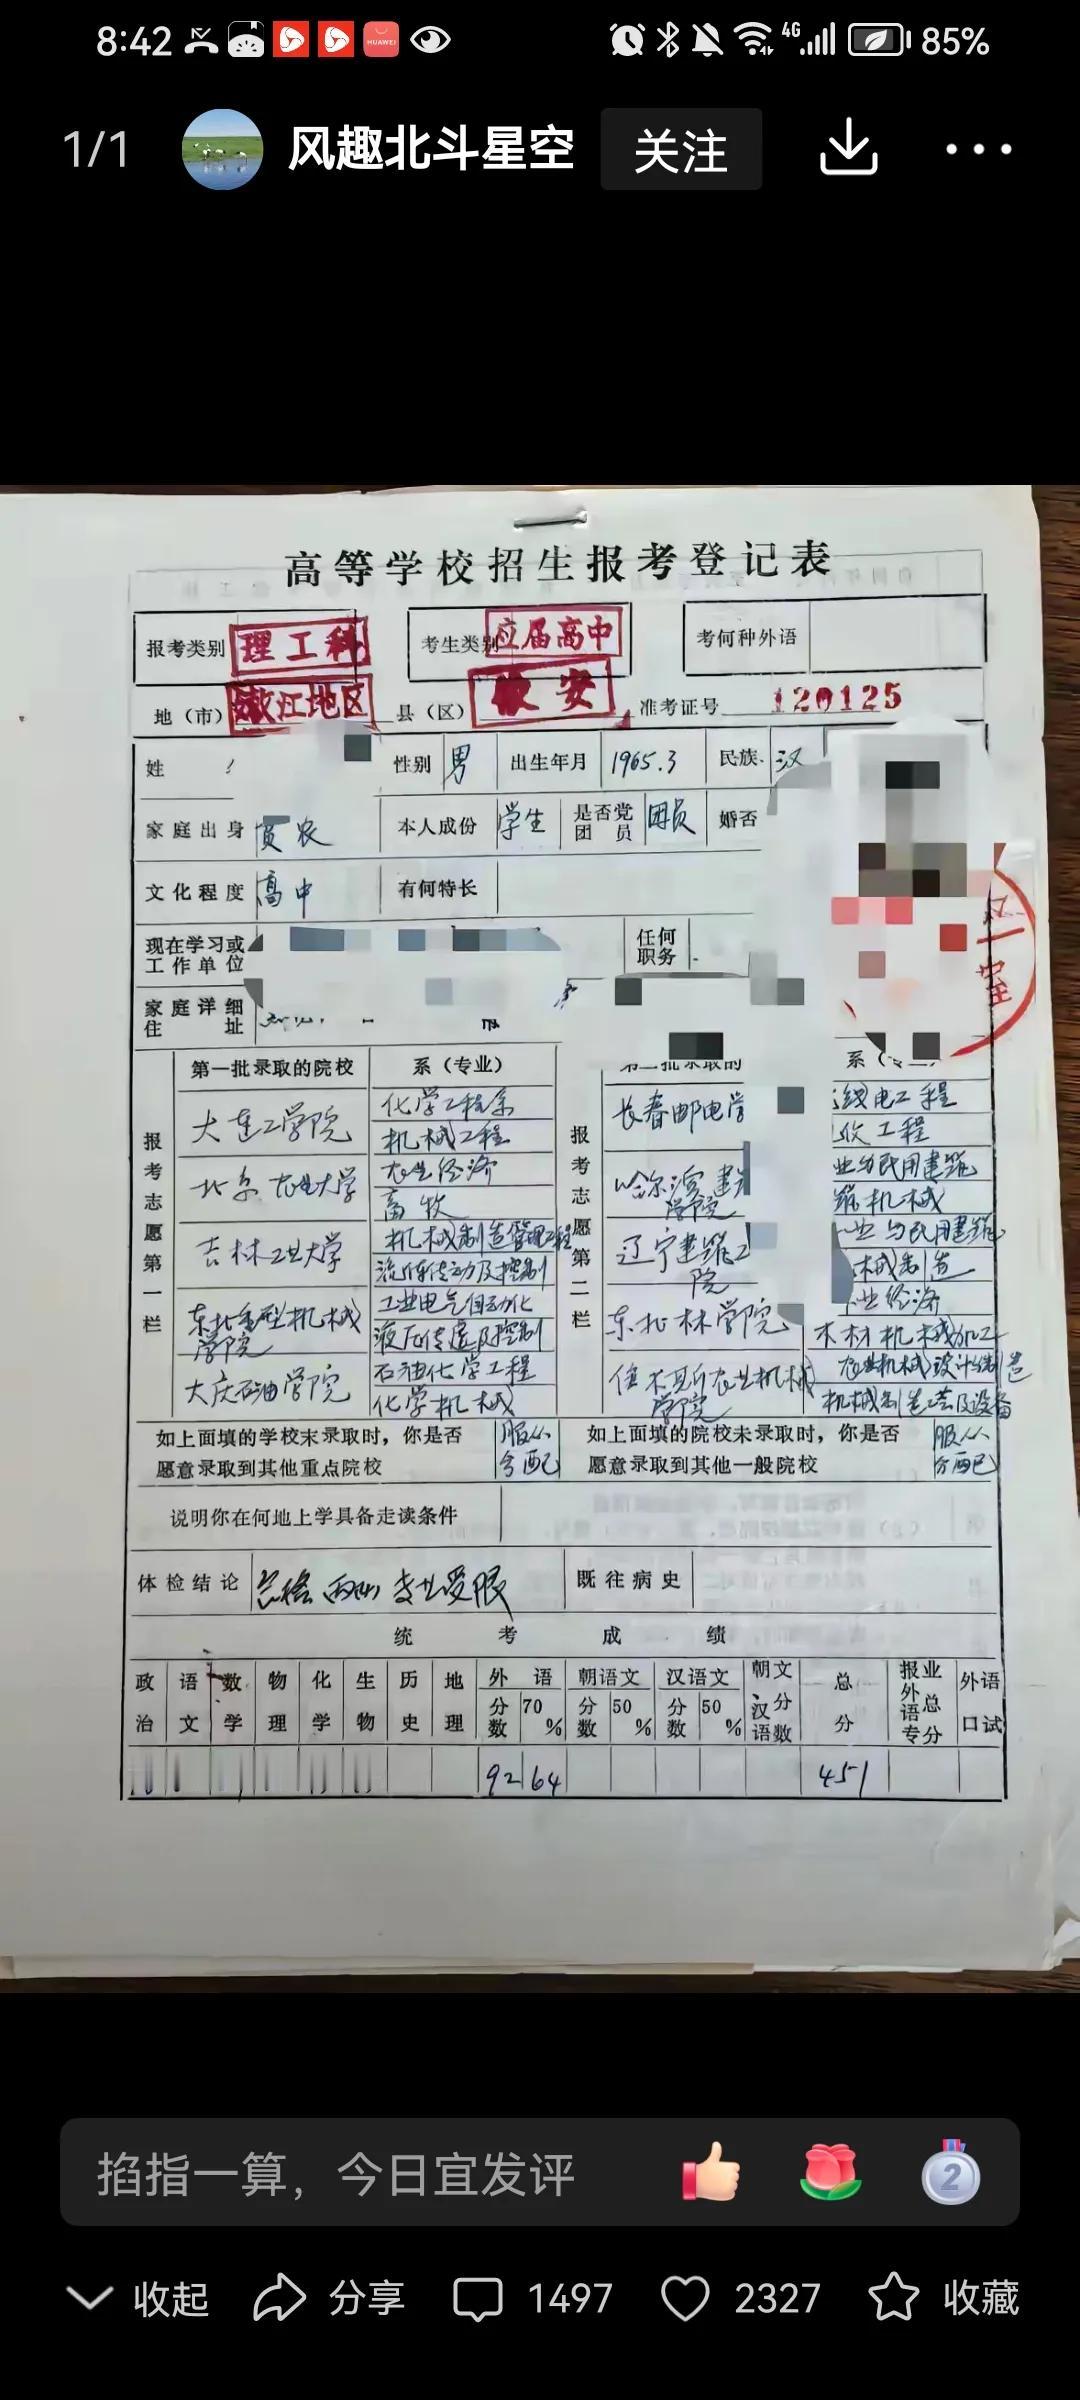 8:42
HUAWEI
4G
85%
1/1
风趣北斗星空
关注
高等学校招生报考登记表
报考类别 理工科
考生类别 应届高中
考何种外语
地（市） 嫩江地区 县（区） 安 准考证号 120125
姓
性别 男 出生年月 1965.3 民族 汉
家庭出身 贫农 本人成份 学生 是否党团员 团员 婚否
文化程度 高中 有何特长
现在学习或工作单位
任何职务
家庭详细住址 市
报考志愿第一栏
第一批录取的院校 系（专业）
大连工学院 化学工程系
机械工程
北京农业大学 农业经济
畜牧
吉林工业大学 机械制造管理工程
流体传动及控制
东北重型机械学院 工业电气自动化
液压传动及控制
大庆石油学院 石油化学工程
化学机械
报考志愿第二栏
批录取的 系
长春邮电学 线电工程
收工程
哈尔滨建 学院 业与民用建筑
筑机械
辽宁建筑工 院 业与民用建筑
械制造
东北林学院 业经济
木材机械加工
佳木斯农业机械学院 农业机械设计制造
机械制造工艺及设备
如上面填的学校未录取时，你是否愿意录取到其他重点院校 服从分配
如上面填的院校未录取时，你是否愿意录取到其他一般院校 服从分配
说明你在何地上学具备走读条件
体检结论 专业受限 既往病史
统考成绩
政治 语文 数学 物理 化学 生物 历史 地理 外语 分数 70% 朝语文 分数 50% 汉语文 分数 50% 朝文、汉语分数 总分 报外语专业总分 外语口试
92 64 451
掐指一算，今日宜发评
2
收起 分享 1497 2327 收藏